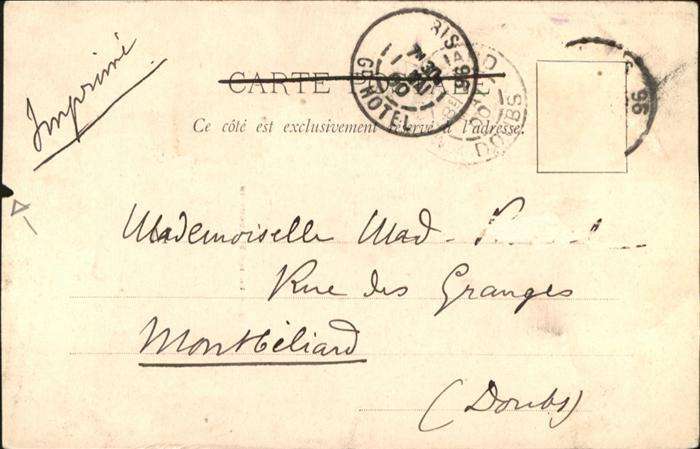 Imprimé
CARTE
Ce côté est exclusivement réservé à l'adresse.
GD HOTEL
DOUBS
96
Mademoiselle Mad
Rue des Granges
Montbéliard
(Doubs)